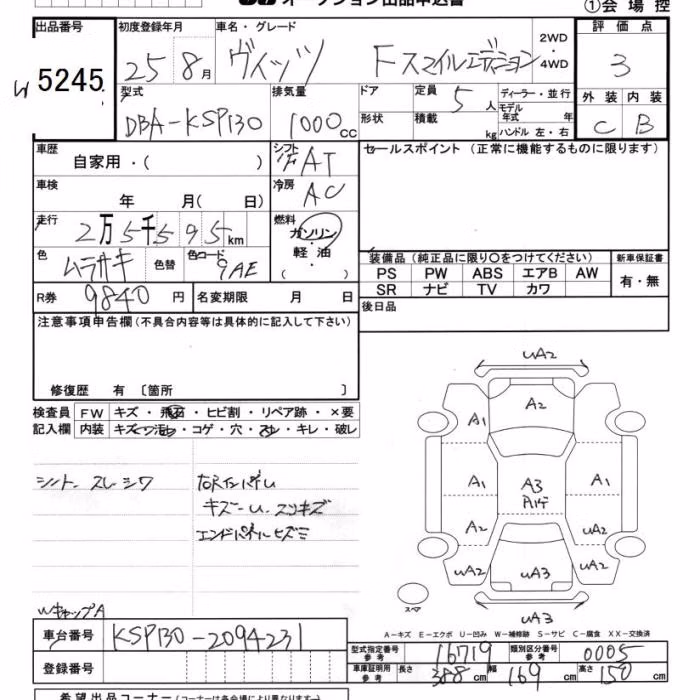 オークション出品申込書 ①会場控
出品番号 初度登録年月 車名・グレード 2WD・4WD 評価点
W 5245 25 8月 ヴィッツ Fスマイルエディション 3
型式 排気量 ドア 定員 5人 ディーラー・並行 外装 内装
DBA-KSP130 1000cc 形状 積載 kg モデル年式 年 ハンドル 左・右 C B
車歴 自家用・( ) シフト AT セールスポイント(正常に機能するものに限ります)
車検 年 月( 日) 冷房 AC
走行 2万5千595km 燃料 ガソリン・軽油・( )
色 ムラサキ 色替 色コード 9AE 装備品(純正品に限り〇をつけてください) 新車保証書
PS PW ABS エアB AW 有・無
SR ナビ TV カワ
R券 9840円 名変期限 月 日 後日品
注意事項申告欄(不具合内容等は具体的に記入して下さい)
修復歴 有 〔箇所 〕
検査員 FW キズ・飛石・ヒビ割・リペア跡・×要
記入欄 内装 キズ・汚れ・コゲ・穴・スレ・キレ・破レ
シート スレ シワ
キズ U スリキズ
エンドパネルヒズミ
WキャップA
UA2
A2
A1
A1 A3 A1
A2 UA2
UA2 UA3 UA2
UA3
スペア
A-キズ E-エクボ U-凹み W-補修跡 S-サビ C-腐食 XX-交換済
車台番号 KSP130-2094231
型式指定番号 参考 16719 類別区分番号 参考 0005
登録番号 車庫証明用 参考 長さ 388cm 幅 169cm 高さ 150cm
希望出品コーナー(コーナーは各会場により異なります)